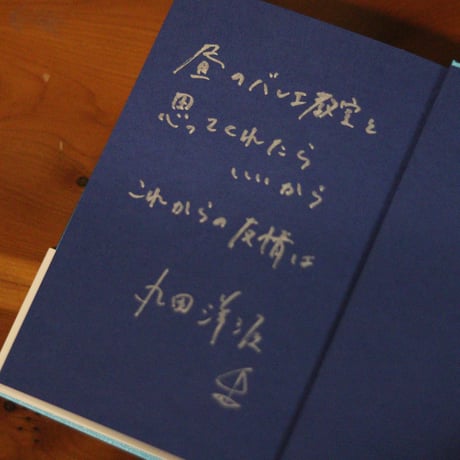 昼のバレエ教室と
思ってくれたら
いいから
これからの友情は
丸田洋渡